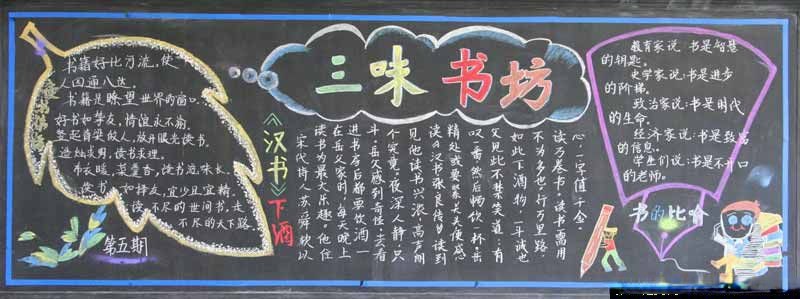 书籍好比河流,使
人四通八达。
书籍是瞭望世界的窗口。
好书如挚友,情谊永不渝。
竖起脊梁做人,放开眼光读书。
造烛求明,读书求理。
布衣暖,菜羹香,读书滋味长。
读书如择友,宜少且宜精。
读不尽的世间书,走
不尽的天下路
第五期
三味书坊
《汉书》下酒
宋代诗人苏舜钦以
读书为最大乐趣。他住
在岳父家时,每天晚上
进书房后都要饮酒一
斗。岳父感到奇怪,去看
个究竟。夜深人静,只
见他读书兴浓,高声朗
读《汉书张良传》读到
精处或要紧关头便感
叹一番,然后畅饮一杯。岳
父见此不禁笑道:有
如此下酒物,一斗诚
不为多也。行万里路,
读万卷书。读书需用
心,一字值千金。
教育家说:书是智慧
的钥匙。
史学家说:书是进步
的阶梯。
政治家说:书是时代
的生命。
经济家说:书是致富
的信息。
学生们说:书是不开口
的老师。
书的比喻